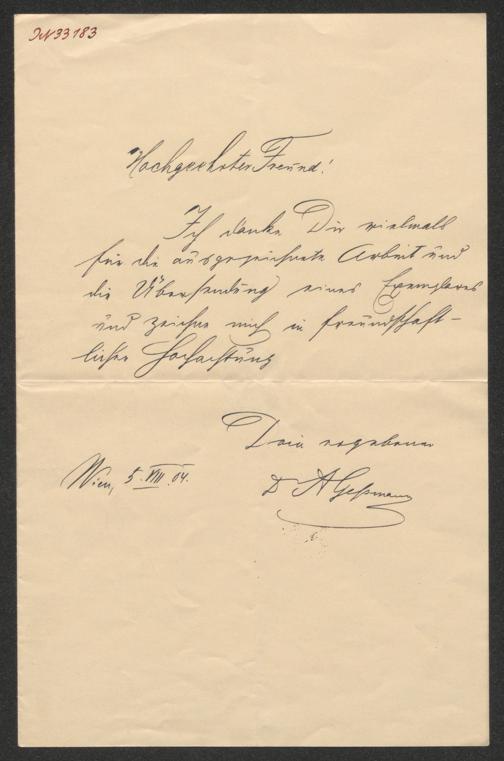 IN 33183
Hochgeehrter Freund!
Ich danke Dir vielmals
für die ausgezeichnete Arbeit und
die Übersendung eines Exemplares
und zeichne mich in freundschaft-
licher Hochachtung
Dein ergebener
Wien, 5. VIII. 04.
Dr A Geßmann